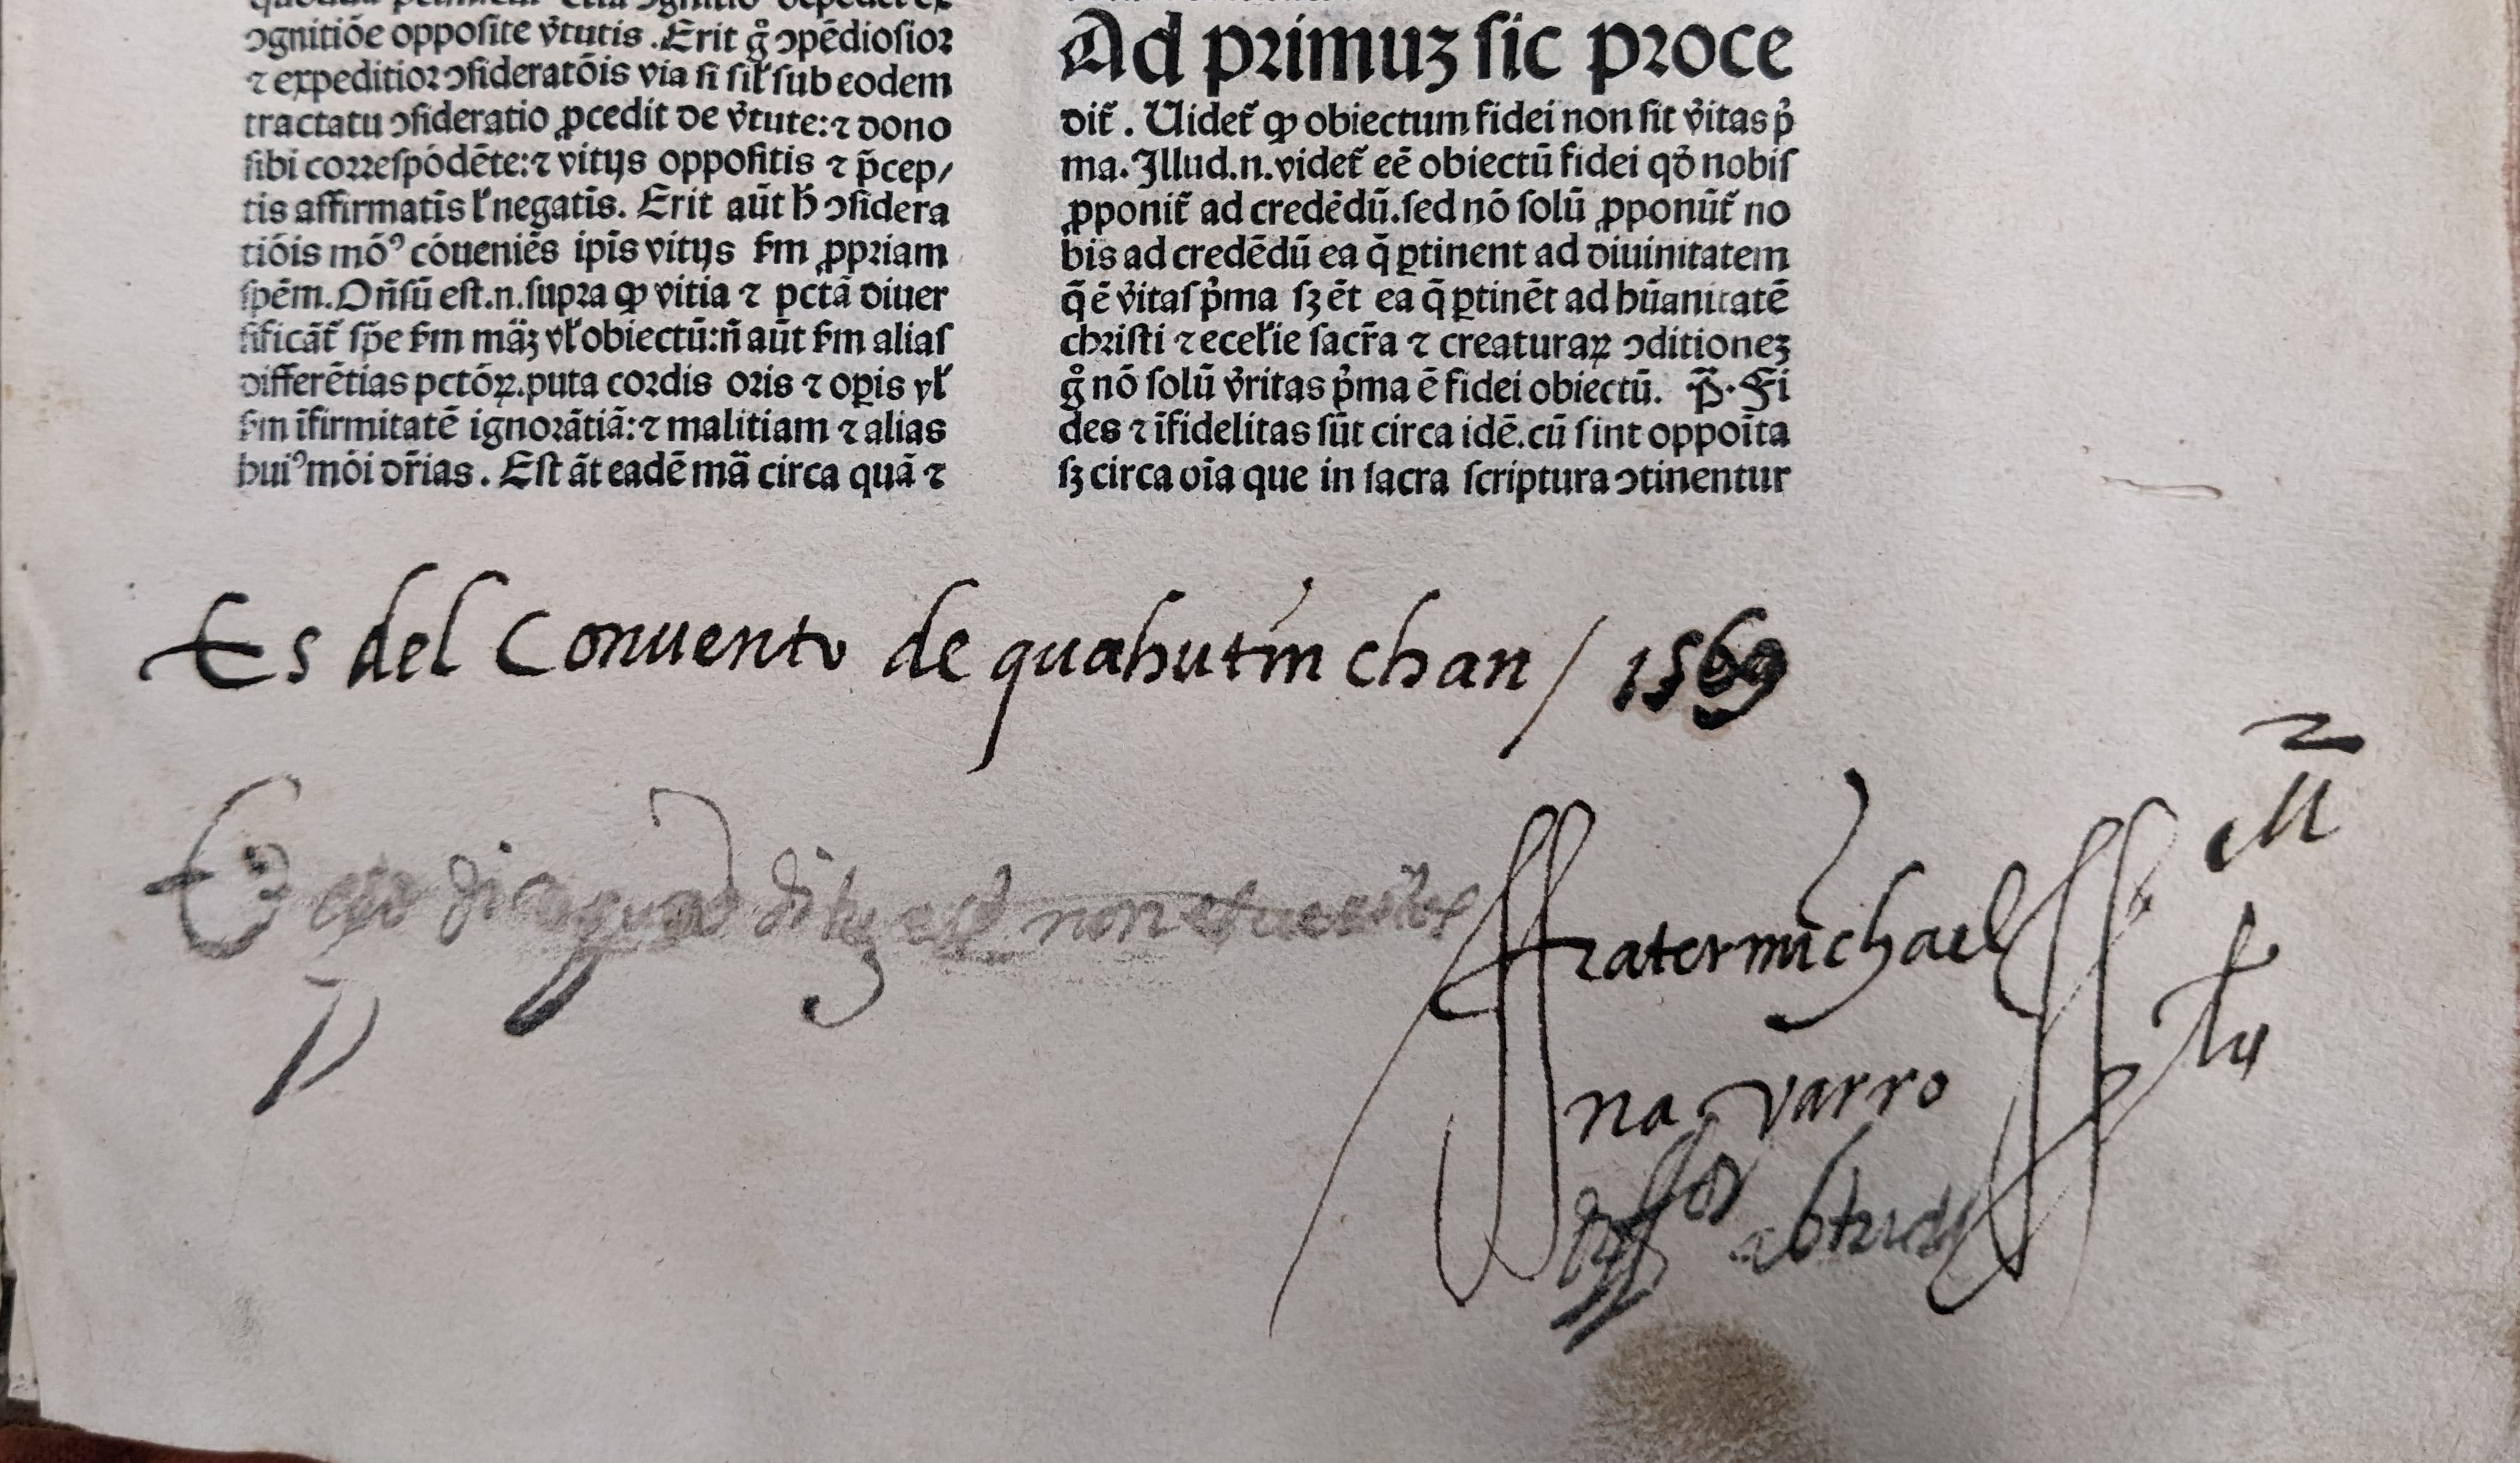 ↄgnitiōe opposite v̉tutis. Erit g̊ ↄpēdiosior
⁊ expeditior ↄsideratōis via si sil̛ sub eodem
tractatu ↄsideratio ꝓcedit de v̉tute:⁊ dono
sibi correspōdēte:⁊ vitijs oppositis ⁊ p̄cep/
tis affirmatīs l̛ negatīs. Erit aūt h̄ ↄsidera
tiōis mōꝰ cōueniēs ip̄is vitijs ẜm ꝓpriam
sp̄ēm. Oñsū est.n.supra ꝙ vitia ⁊ pctā diuer
sificāt̄ sp̄e ẜm māꝫ vl̛ obiectū:ñ aūt ẜm alias
differētias pctōꝝ.puta cordis oris ⁊ oꝑis vl̛
ẜm īfirmitatē ignorātiā:⁊ malitiam ⁊ alias
huiꝰmōi dr̄ias. Est āt eadē mā circa quā ⁊
Ad primuꝫ sic proce
dit̄. Uidet̄ ꝙ obiectum fidei non sit v̉itas p̉
ma. Illud.n.videt̄ eē obiectū fidei qd̛ nobis
ꝓponit̄ ad credēdū.sed nō solū ꝓponūt̄ no
bis ad credēdū ea q̄ ꝑtinent ad diuinitatem
q̄ ē v̉itas p̉ma sꝫ ēt ea q̄ ꝑtinēt ad hūanitatē
christi ⁊ eccl̛ie sacr̄a ⁊ creaturaꝝ ↄditioneꝫ
g̊ nō solū v̉ritas p̉ma ē fidei obiectū. P̄. Fi
des ⁊ īfidelitas sūt circa idē.cū sint oppoīta
sꝫ circa oīa que in sacra scriptura ↄtinentur
Es del Conuento de quahutinchan / 1569
ffrater michael
navarro